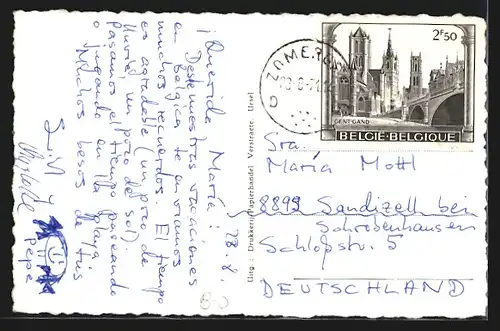 23.8.
¡Querida María:
Desde nuestras vacaciones
en Bélgica te enviamos
muchos recuerdos. El tiempo
es agradable (un poco de
lluvia, un poco de sol).
Pasamos el tiempo paseando
y jugando en la playa.
Muchos besos de tus
Pepe
Uitg.: Drukkerij-Papierhandel Verstraete, Ursel
ZOMERGEM
2F50
GENT GAND
BELGIE·BELGIQUE
Sra.
María Mottl
8899 Sandizell bei
Schrobenhausen
Schloßstr. 5
DEUTSCHLAND